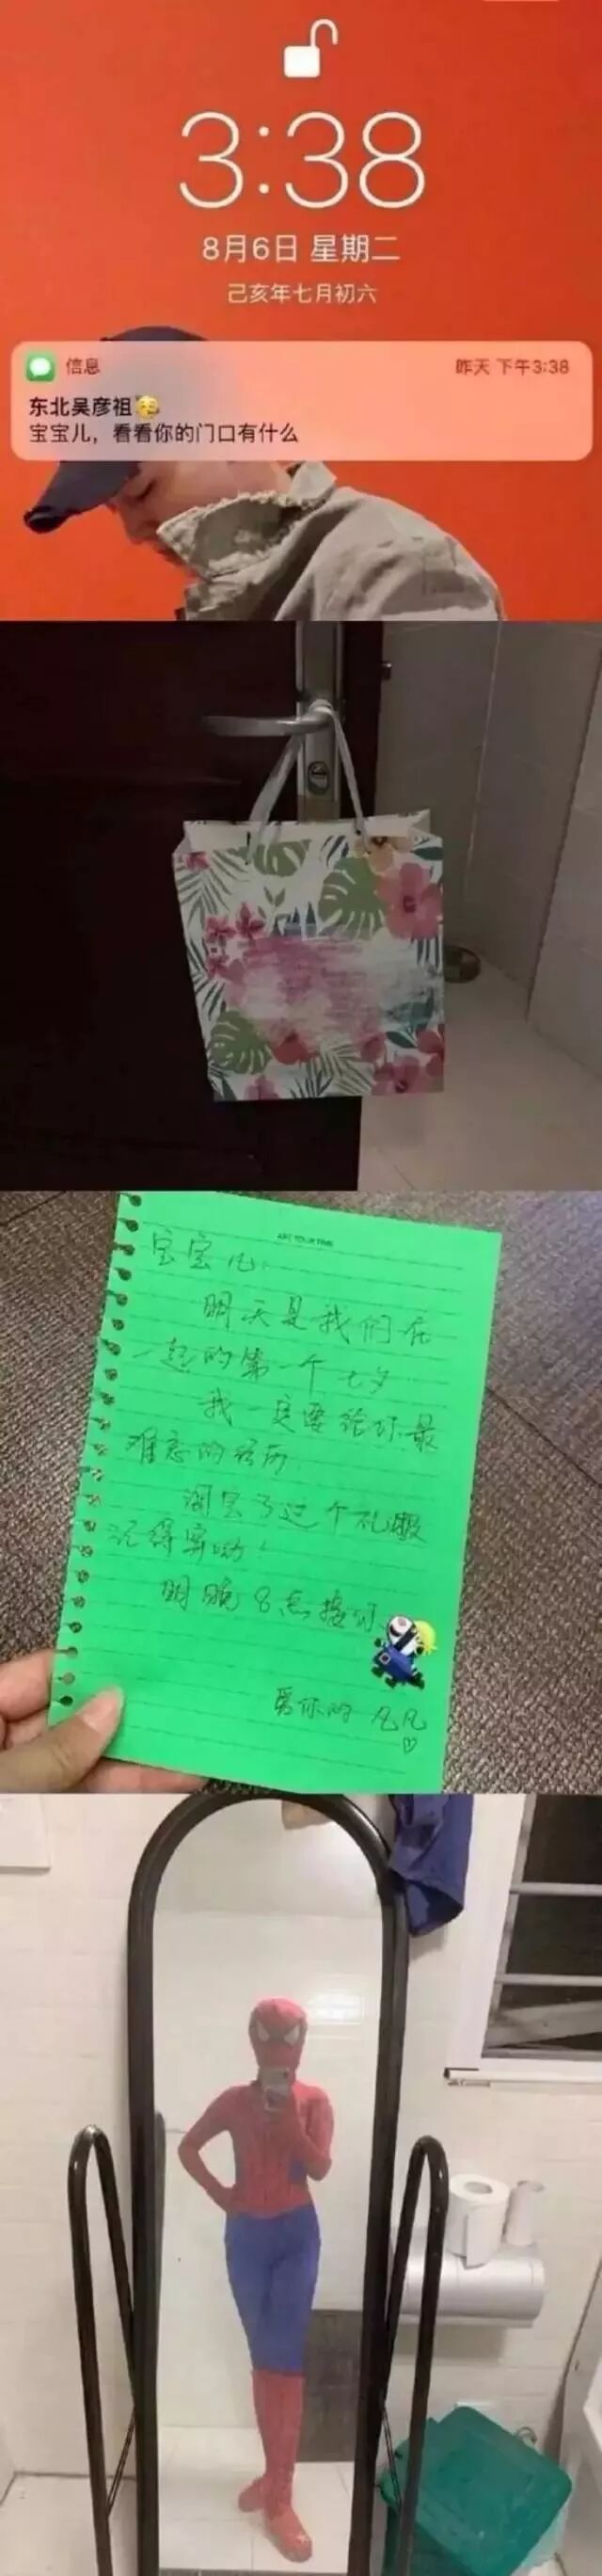 3:38
8月6日 星期二
己亥年七月初六
信息
昨天 下午3:38
东北吴彦祖🥳
宝宝儿，看看你的门口有什么
宝宝儿：
明天是我们在
一起的第一个七夕
我一定要给你最
难忘的经历
闺里了这个礼服
记得穿呦！
明晚8点接你
爱你的 凡凡
♡